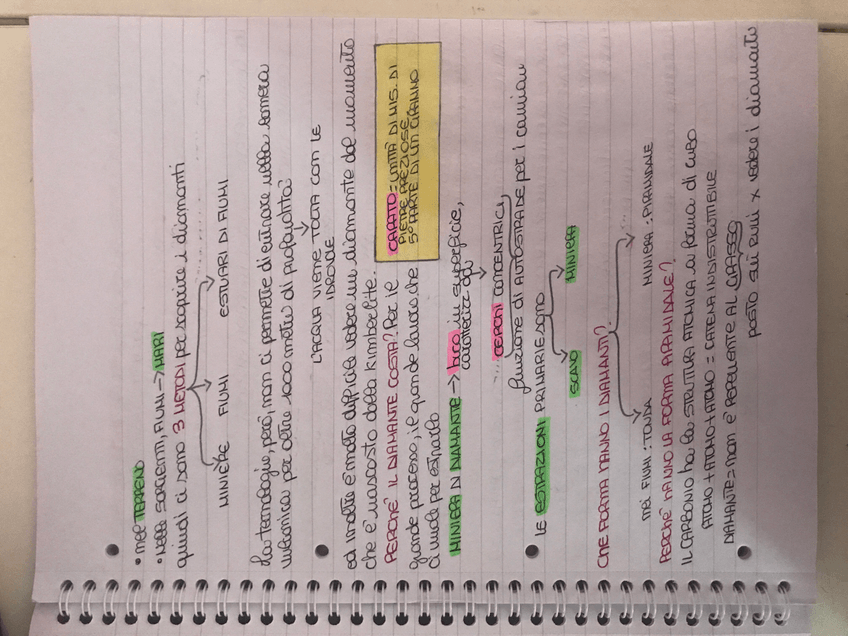 • nel TERRENO
• Nelle SORGENTI, FIUMI -> MARI
quindi ci sono 3 METODI per scoprire i diamanti
MINIERE FIUMI ESTUARI DI FIUMI
La tecnologia, però, non ci permette di entrare nella camera
vulcanica per oltre 1000 metri di profondità
L'ACQUA VIENE TOLTA CON LE
IDROVALE
ed inoltre è molto difficile vedere un diamante dal momento
che è nascosto dalla kimberlite.
CARATO = UNITÀ DI MIS. DI
PIETRE PREZIOSE.
5° PARTE DI UN GRAMMO
PERCHÈ IL DIAMANTE COSTA? Per il
grande processo, il grande lavoro che
ci vuole per estrarlo
MINIERA DI DIAMANTE -> buco in superficie,
caratterizz da
... CERCHI CONCENTRICI
funzione di AUTOSTRADE per i camion
le ESTRAZIONI PRIMARIE sono
SCAVO MINIERA
CHE FORMA HANNO I DIAMANTI?
nei FIUMI: TONDA MINIERA: PIRAMIDALE
PERCHÈ HANNO LA FORMA PIRAMIDALE?
IL CARBONIO ha la STRUTTURA ATOMICA a forma di CUBO
ATOMO + ATOMO + ATOMO = CATENA INDISTRUTTIBILE
DIAMANTE = non è REPELLENTE AL GRASSO
posto sui rulli x vedere i diamanti